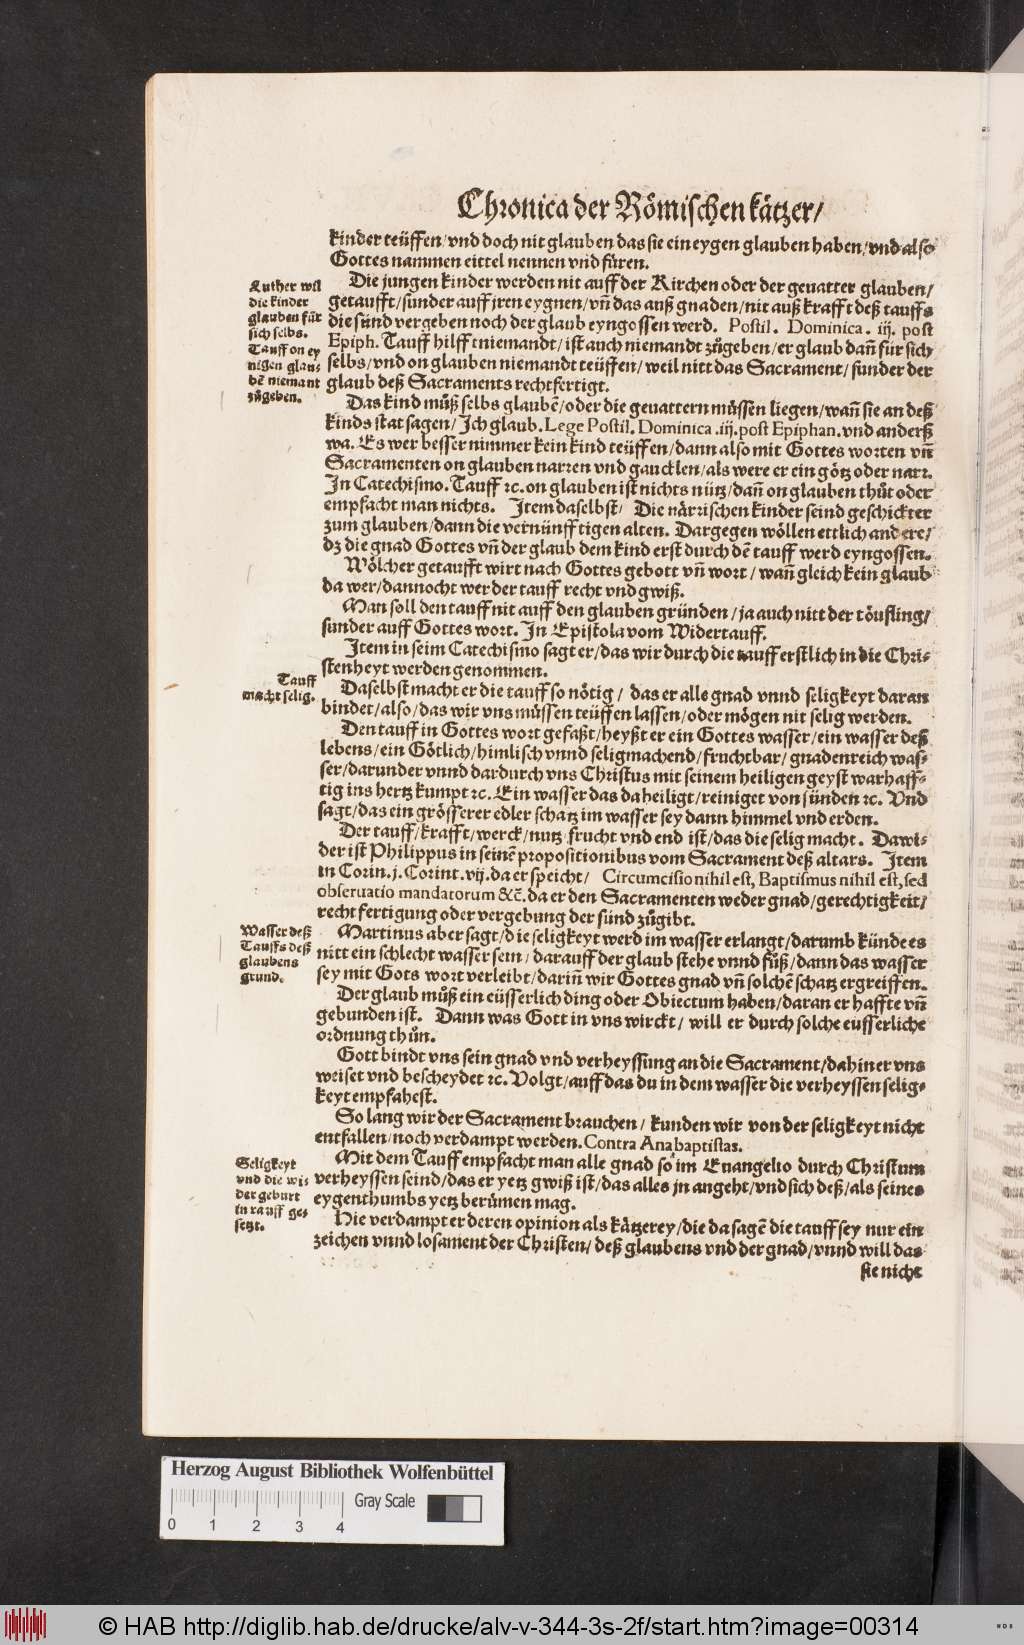 Chronica der Römischen kätzer/
kinder teüffen/vnd doch nit glauben das sie ein eygen glauben haben/vnd also
Gottes nammen eittel nennen vnd füren.
Luther wil
die kinder
glauben für
sich selbs.
Tauff on ey
nigen glau-
bē niemant
zůgeben.
Die jungen kinder werden nit auff der Kirchen oder der geuatter glauben/
getaufft/sunder auff jren eygnen/vñ das auß gnaden/nit auß krafft deß tauffs
die sünd vergeben noch der glaub eyngossen werd. Postil. Dominica. iij. post
Epiph. Tauff hilfft niemandt/ist auch niemandt zůgeben/er glaub dañ für sich
selbs/vnd on glauben niemandt teüffen/weil nitt das Sacrament/sunder der
glaub deß Sacraments rechtfertigt.
Das kind můß selbs glaubē/oder die geuattern müssen liegen/wañ sie an deß
kinds stat sagen/Jch glaub. Lege Postil. Dominica .iij. post Epiphan. vnd anderß
wa. Es wer besser nimmer kein kind teüffen/dann also mit Gottes worten vñ
Sacramenten on glauben narren vnd gaucklen/als were er ein götz oder narr.
In Catechismo. Tauff ꝛc. on glauben ist nichts nütz/dañ on glauben thůt oder
empfacht man nichts. Jtem daselbst/ Die närrischen kinder seind geschickter
zum glauben/dann die vernünfftigen alten. Dargegen wöllen ettlich andere/
dz die gnad Gottes vñ der glaub dem kind erst durch dē tauff werd eyngossen.
Wölcher getaufft wirt nach Gottes gebott vñ wort/wañ gleich kein glaub
da wer/dannocht wer der tauff recht vnd gwiß.
Man soll den tauff nit auff den glauben gründen/ja auch nitt der töufling/
sunder auff Gottes wort. Jn Epistola vom Widertauff.
Jtem in seim Catechismo sagt er/das wir durch die tauff erstlich in die Chri-
stenheyt werden genommen.
Tauff
macht selig.
Daselbst macht er die tauff so nötig/ das er alle gnad vnnd seligkeyt daran
bindet/also/das wir vns müssen teüffen lassen/oder mögen nit selig werden.
Den tauff in Gottes wort gefaßt/heyßt er ein Gottes wasser/ein wasser deß
lebens/ein Götlich/himlisch vnnd seligmachend/fruchtbar/ gnadenreich was-
ser/darunder vnnd dardurch vns Christus mit seinem heiligen geyst warhaff-
tig ins hertz kumpt ꝛc. Ein wasser das da heiligt/reiniget von sünden ꝛc. Vnd
sagt/das ein grösserer edler schatz im wasser sey dann himmel vnd erden.
Der tauff/krafft/werck/nutz frucht vnd end ist/das die selig macht. Dawi-
der ist Philippus in seinē propositionibus vom Sacrament deß altars. Jtem
in Corin.j.Corint.vij.da er speicht/ Circumcisio nihil est, Baptismus nihil est, sed
obseruatio mandatorum &c̄. da er den Sacramenten weder gnad/gerechtigkeit/
rechtfertigung oder vergebung der sünd zůgibt.
Wasser deß
Tauffs deß
glaubens
grund.
Martinus aber sagt/die seligkeyt werd im wasser erlangt/darumb künde es
nitt ein schlecht wasser sein/darauff der glaub stehe vnnd fůß/dann das wasser
sey mit Gots wort verleibt/dariñ wir Gottes gnad vñ solchē schatz ergreiffen.
Der glaub můß ein eüsserlich ding oder Obiectum haben/daran er haffte vñ
gebunden ist. Dann was Gott in vns wirckt/ will er durch solche eusserliche
ordnung thůn.
Gott bindt vns sein gnad vnd verheyssung an die Sacrament/dahin er vns
weiset vnd bescheydet ꝛc. Volgt/auff das du in dem wasser die verheyssen selig-
keyt empfahest.
So lang wir der Sacrament brauchen/ kunden wir von der seligkeyt nicht
entfallen/noch verdampt werden. Contra Anabaptistas.
Seligkeyt
vnd die wi-
der geburt
in tauff ge-
setzt.
Mit dem Tauff empfacht man alle gnad so im Euangelio durch Christum
verheyssen seind/das er yetz gwiß ist/das alles jn angeht/vnd sich deß/als seines
eygenthumbs yetz berümen mag.
Hie verdampt er deren opinion als kätzerey/die da sagē die tauff sey nur ein
zeichen vnnd losament der Christen/deß glaubens vnd der gnad/vnnd will das
sie nicht
Herzog August Bibliothek Wolfenbüttel
Gray Scale
0 1 2 3 4
© HAB http://diglib.hab.de/drucke/alv-v-344-3s-2f/start.htm?image=00314